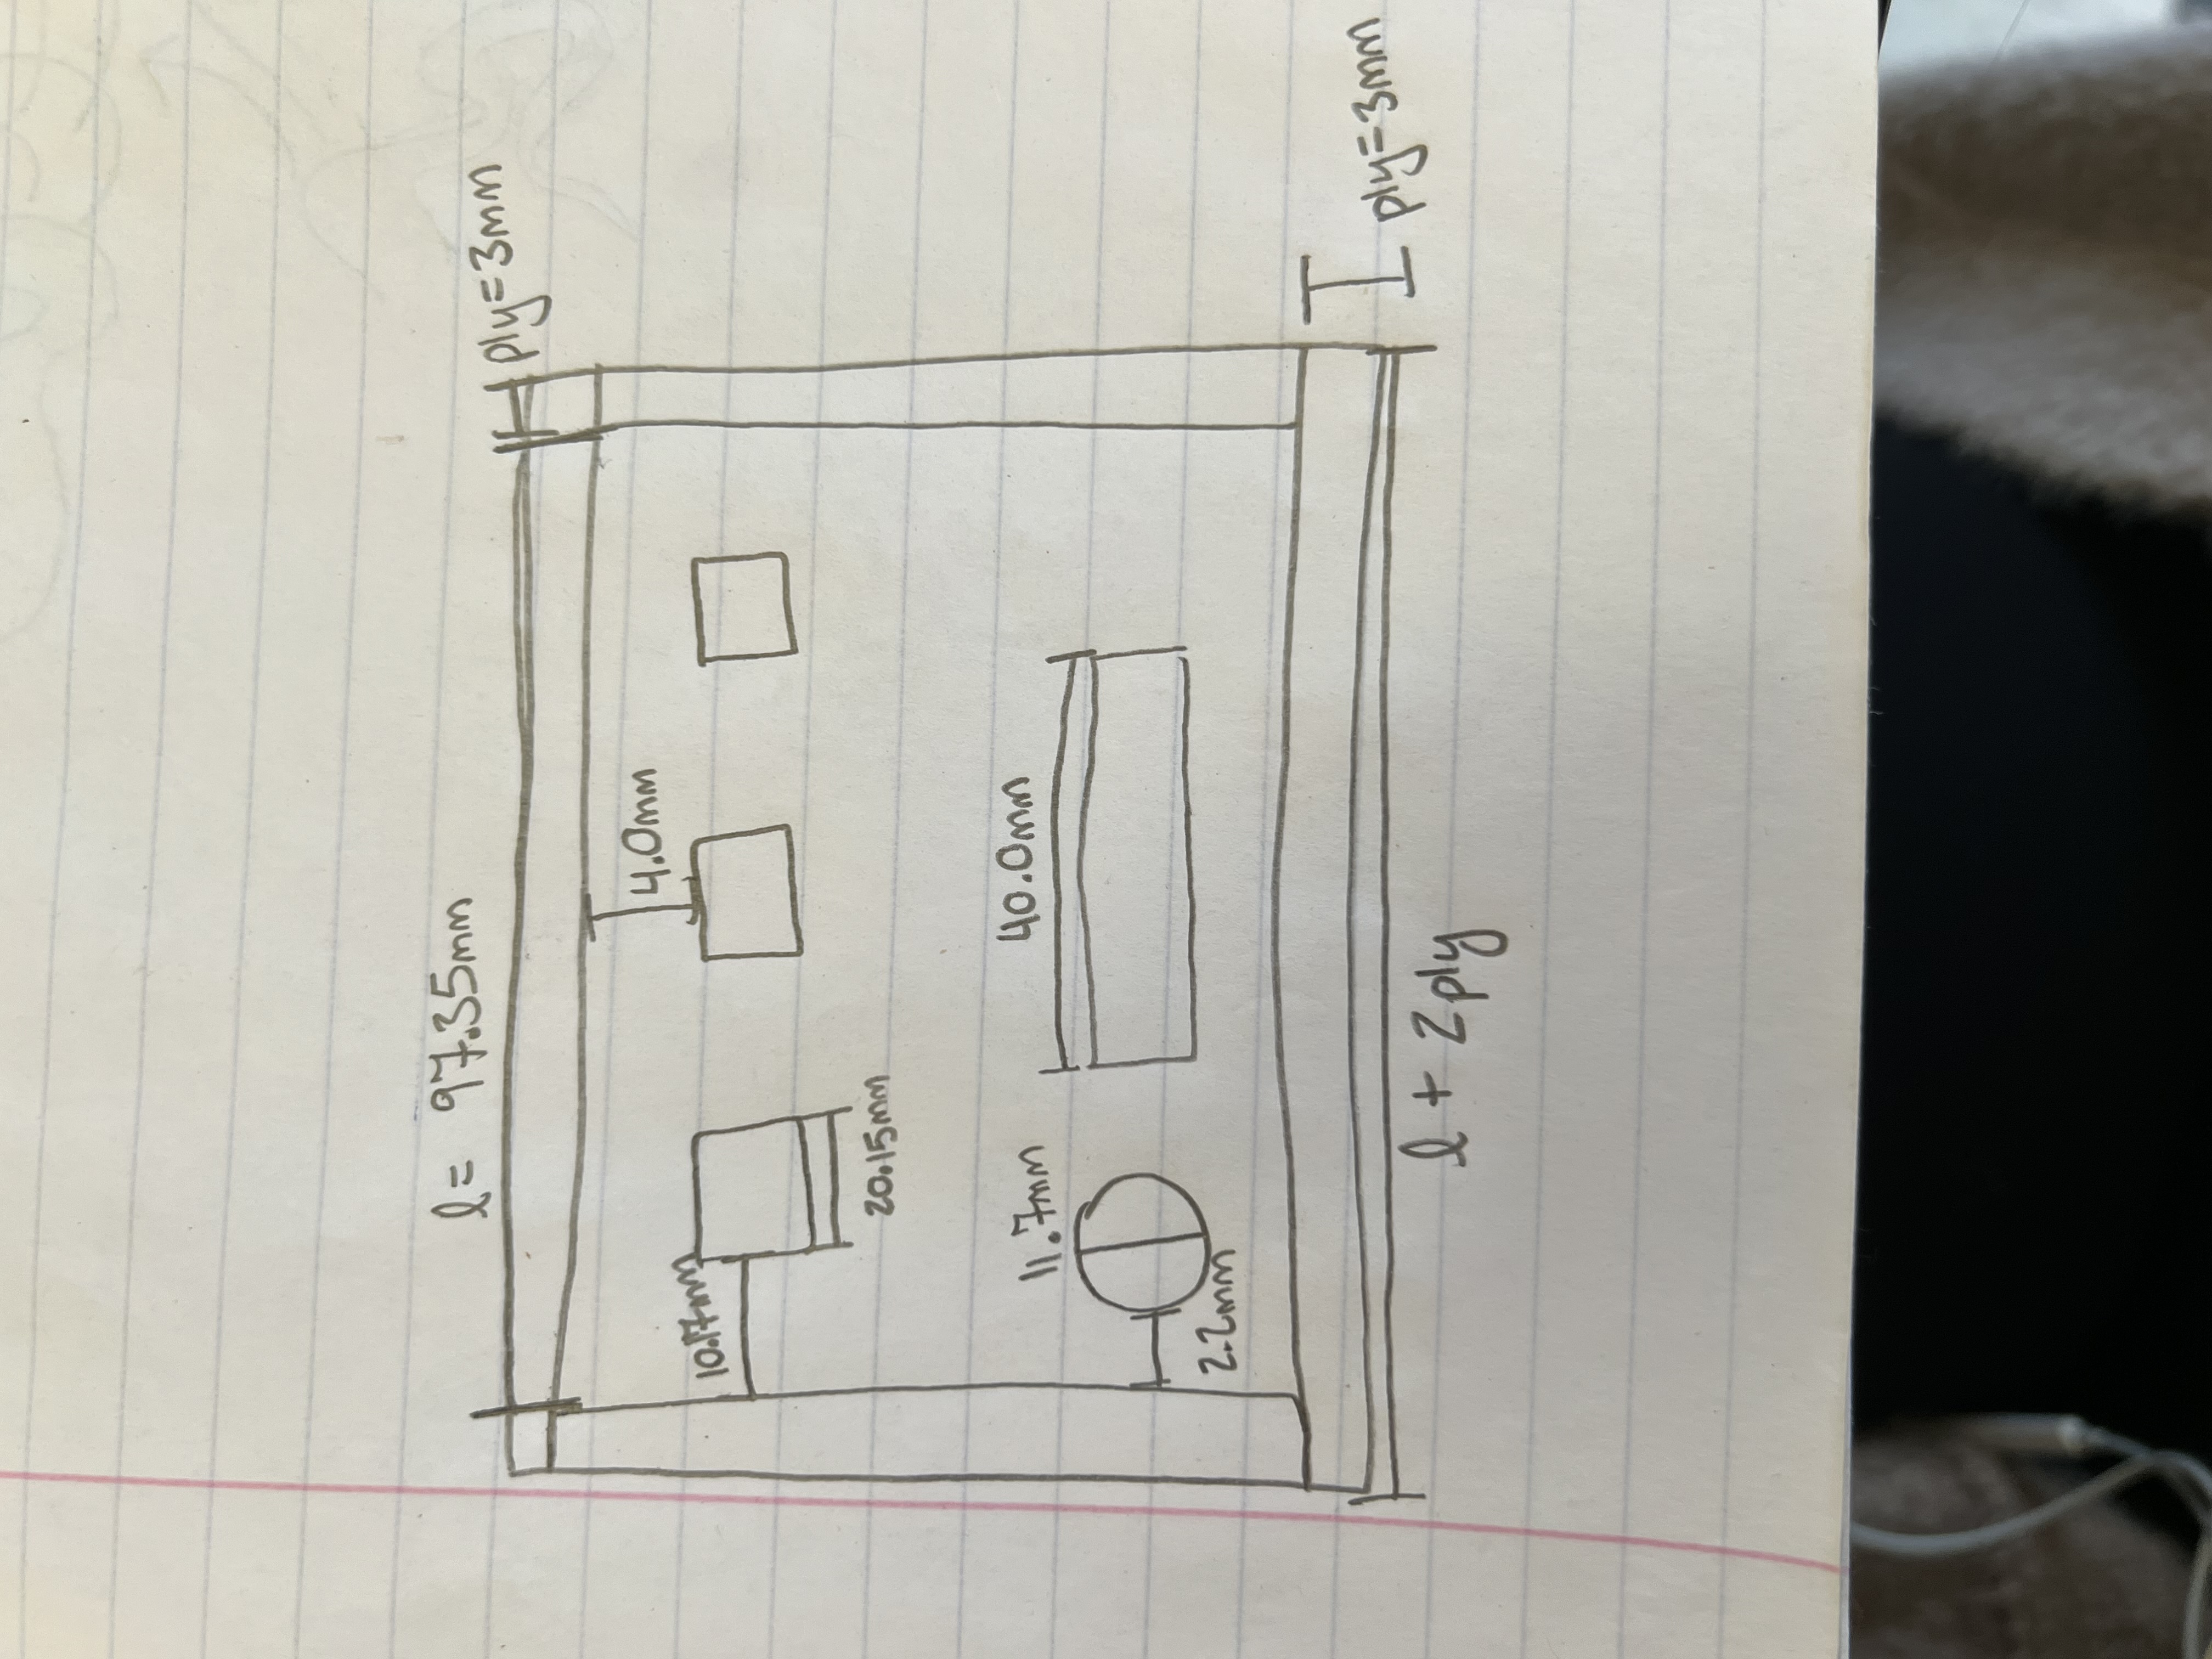 l= 97.35mm
ply=3mm
4.0mm
10.17mm
20.15mm
40.0mm
11.7mm
2.2mm
ply=3mm
l + 2ply